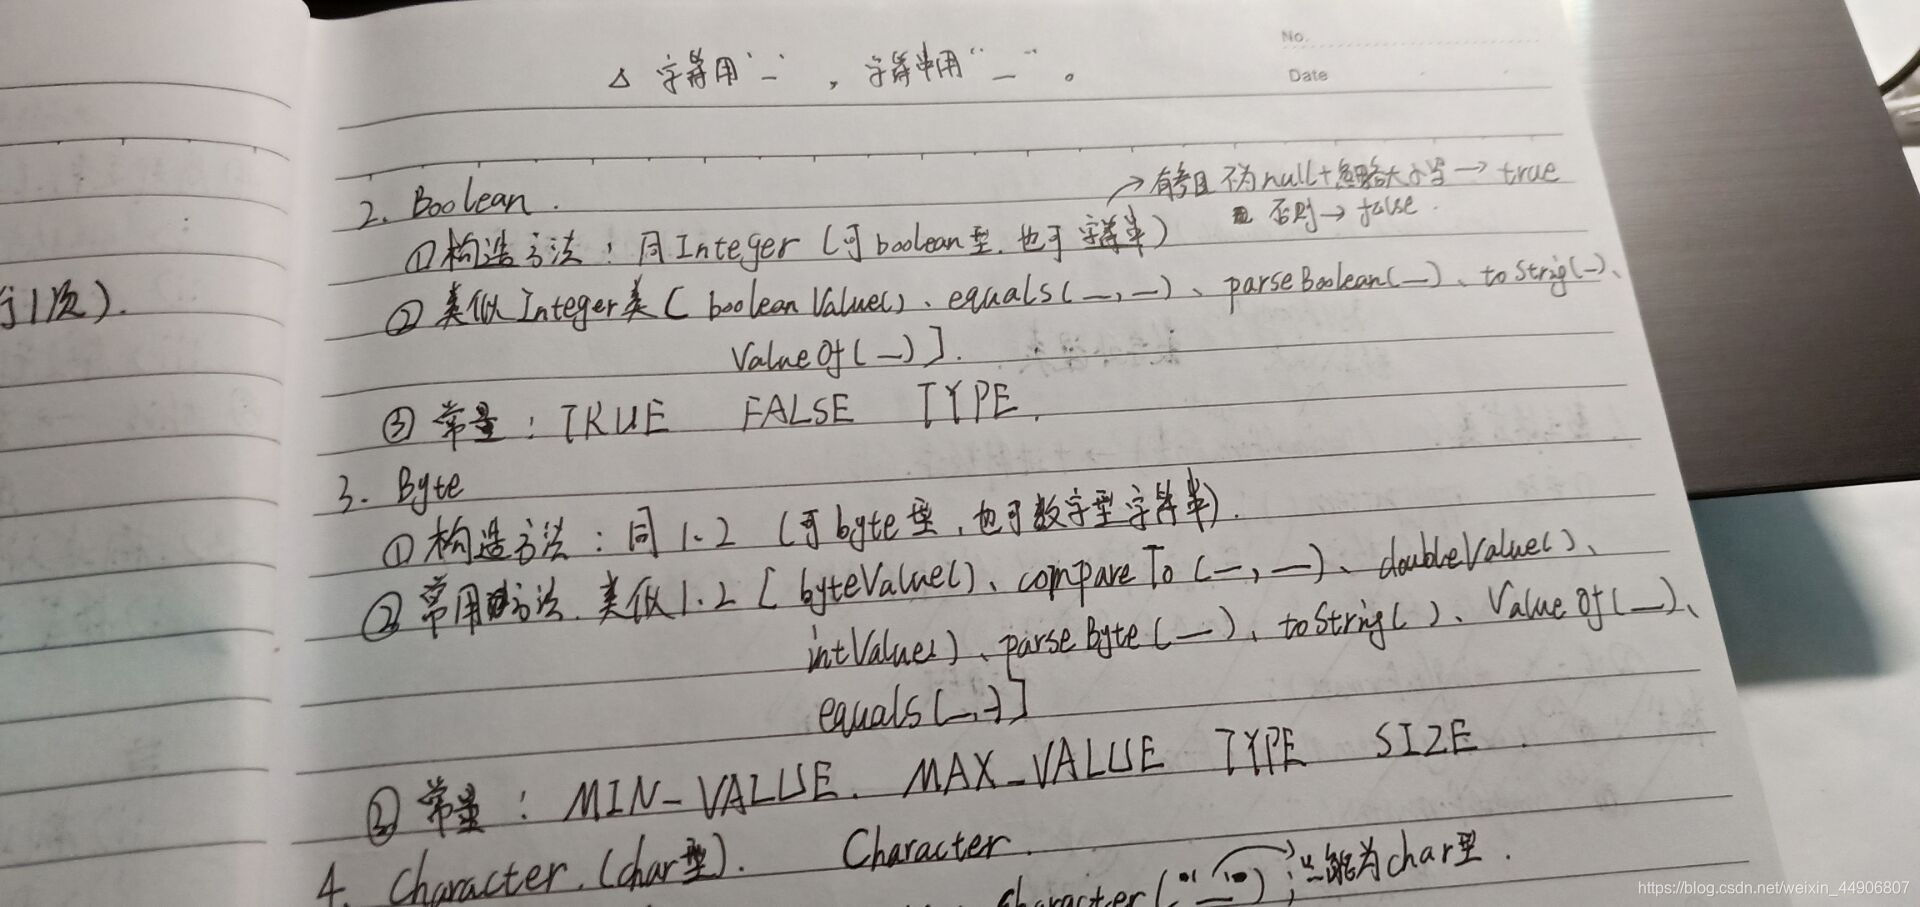 No.
Date
△ 字符用'_'，字符串用"_"。
2. Boolean.
→ 有参且不为null+忽略大小写→true
否则→false.
①构造方法：同Integer(可boolean型.也可字符串)
②类似Integer类[booleanValue()、equals(_,_)、parseBoolean(_)、toStrig(_)、
ValueOf(_)].
③常量：TRUE FALSE TYPE.
3. Byte
①构造方法：同1.2 (可byte型,也可数字型字符串).
②常用方法.类似1.2[byteValue()、compareTo(_,_)、doubleValue()、
intValue()、parseByte(_)、toStrig()、ValueOf(_)、
equals(_,_)]
③常量：MIN_VALUE. MAX_VALUE TYPE SIZE.
4. Character.(char型). Character.
Character('_');只能为char型.
https://blog.csdn.net/weixin_44906807